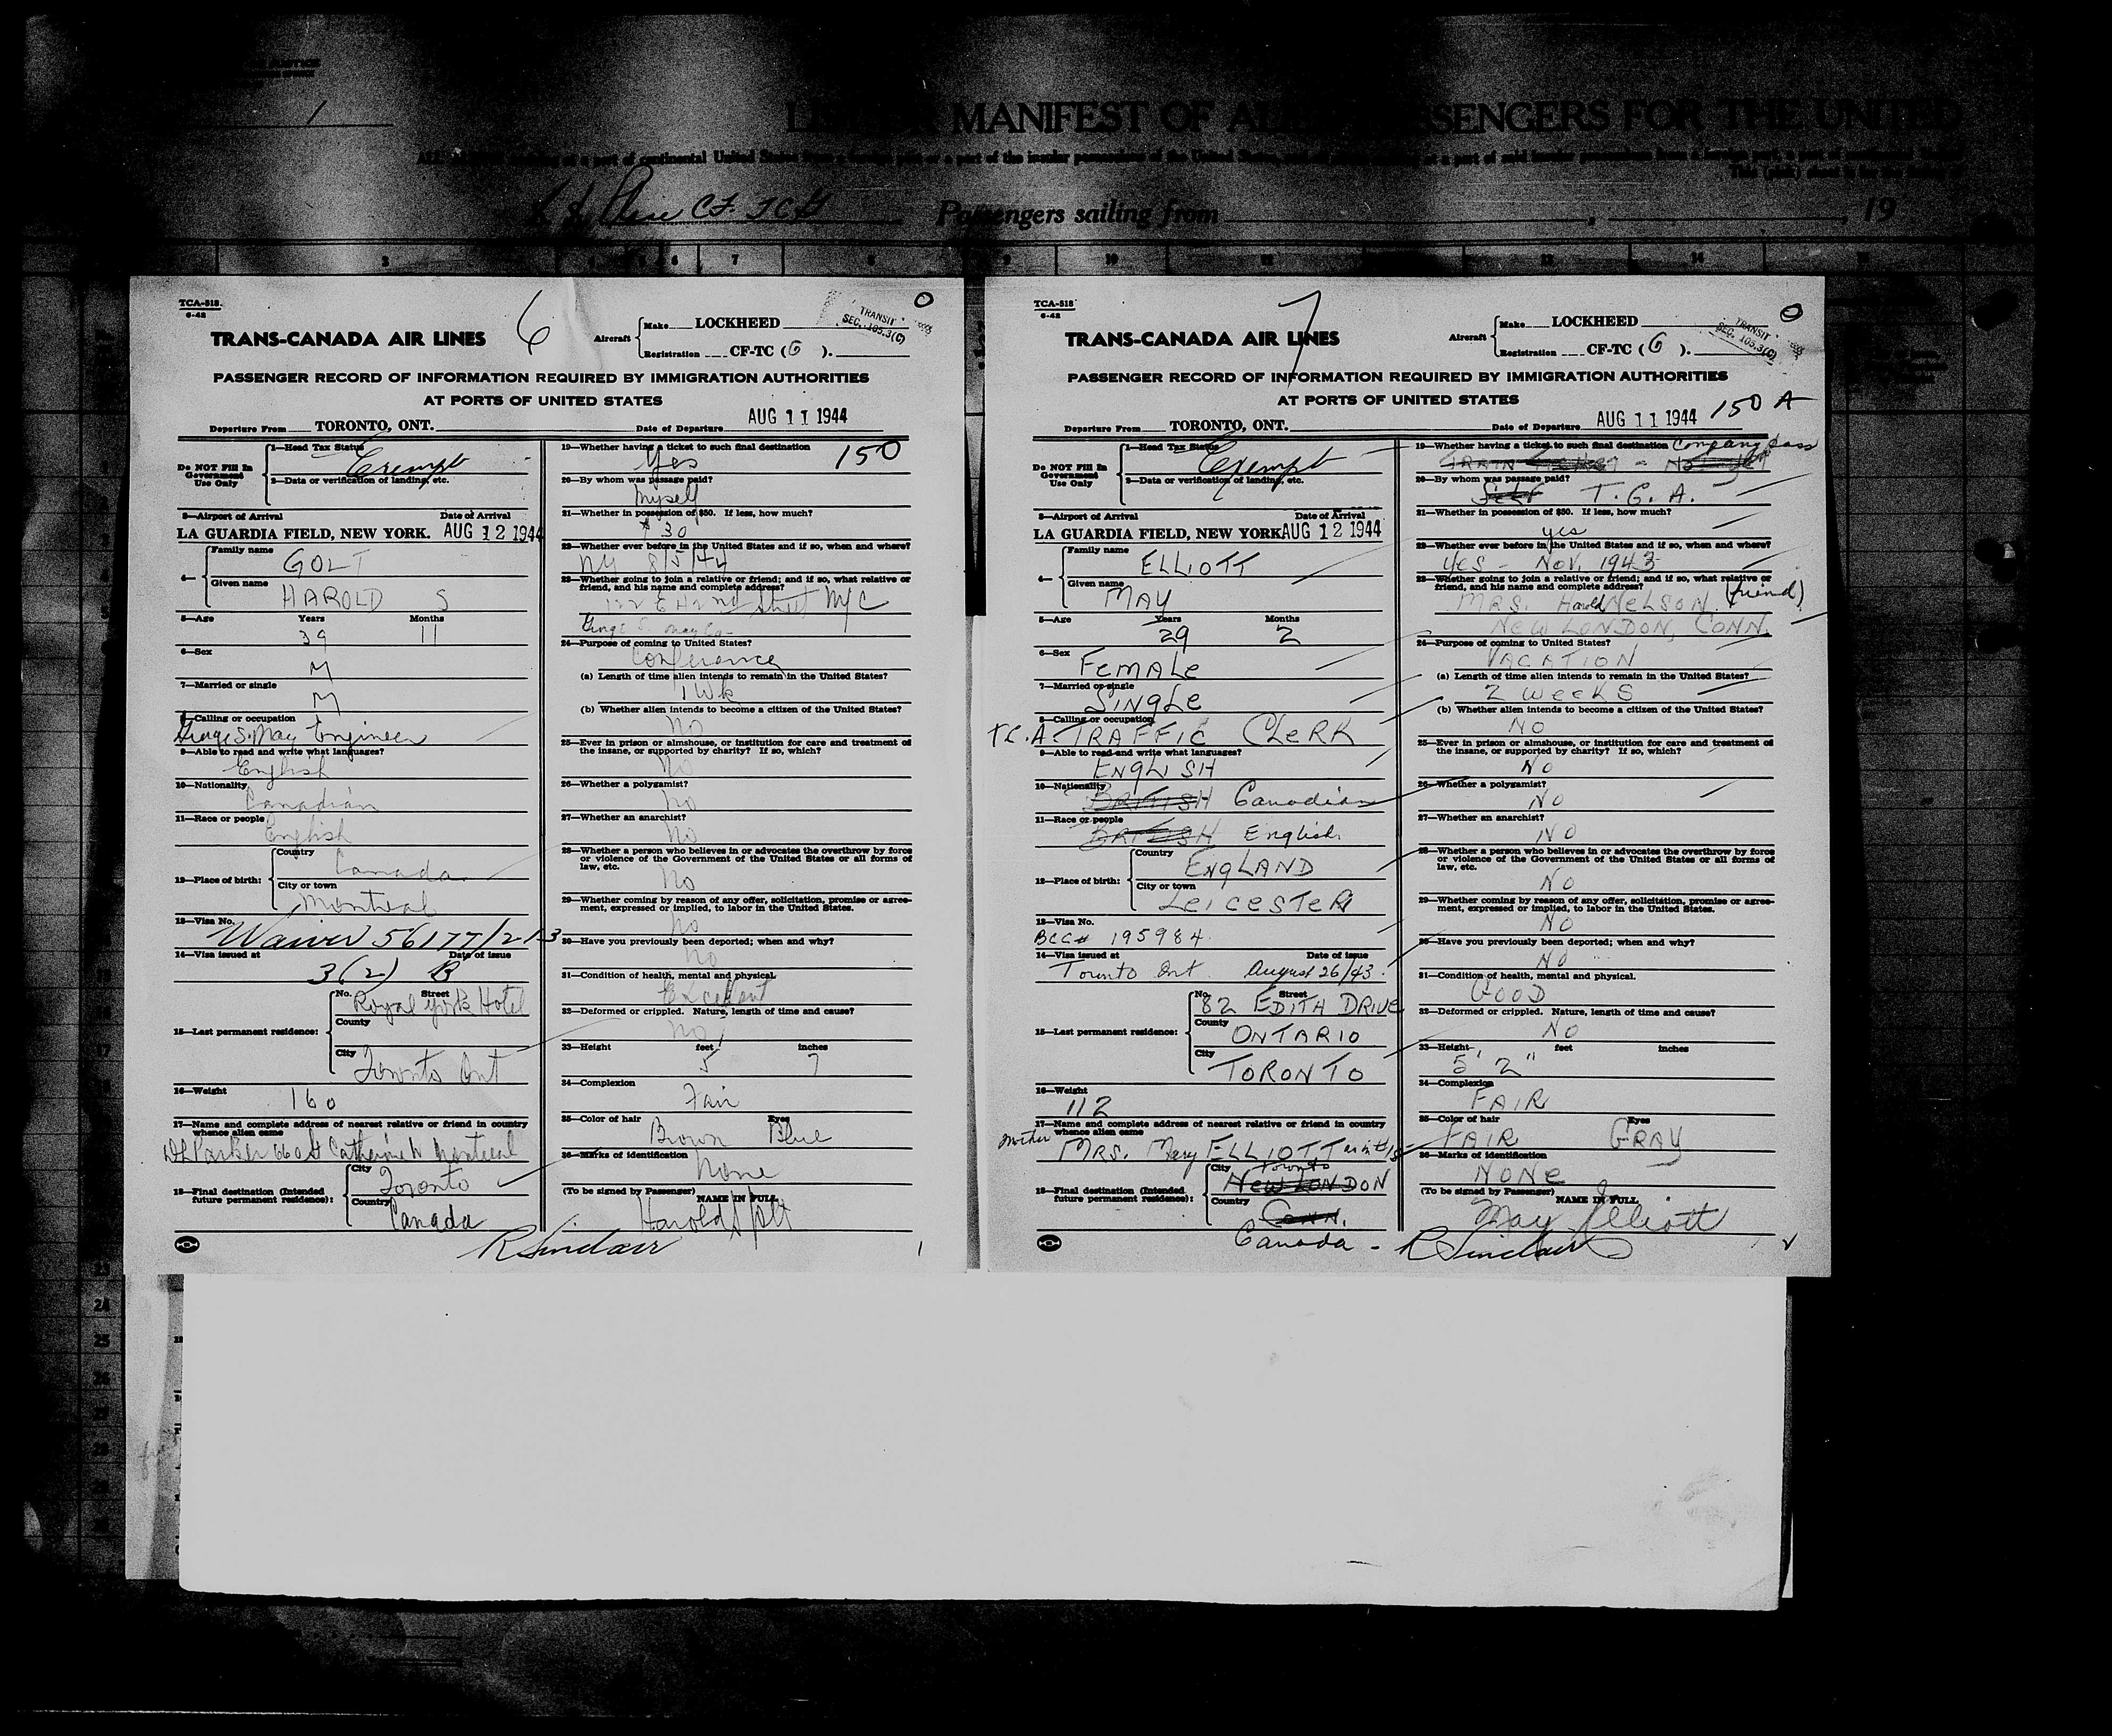 MANIFEST OF
PASSENGERS FOR THE UNITED
CF. TCG
Passengers sailing from
, 19
TCA-518
6-42
6
TRANS-CANADA AIR LINES
Aircraft
Make LOCKHEED
Registration CF-TC ( G ).
TRANSIT
SEC. 105.3(C)
0
PASSENGER RECORD OF INFORMATION REQUIRED BY IMMIGRATION AUTHORITIES
AT PORTS OF UNITED STATES
Departure From TORONTO, ONT. Date of Departure AUG 11 1944
Do NOT Fill In
Government
Use Only
1—Head Tax Status
Exempt
2—Data or verification of landing, etc.
3—Airport of Arrival Date of Arrival
LA GUARDIA FIELD, NEW YORK. AUG 12 1944
4—
Family name
GOLT
Given name
HAROLD S
5—Age Years Months
39 11
6—Sex
M
7—Married or single
M
8—Calling or occupation
George S. May Engineer
9—Able to read and write what languages?
English
10—Nationality
Canadian
11—Race or people
English
12—Place of birth:
Country
Canada
City or town
Montreal
13—Visa No.
Waiver 56177/213
14—Visa issued at Date of issue
3(2) B
15—Last permanent residence:
No. Street
Royal York Hotel
County
City
Toronto Ont
16—Weight
160
17—Name and complete address of nearest relative or friend in country
whence alien came
Parker 660 St Catherine W Montreal
18—Final destination (Intended
future permanent residence):
City
Toronto
Country
Canada
R Sinclair
19—Whether having a ticket to such final destination
Yes
150
20—By whom was passage paid?
Myself
21—Whether in possession of $50. If less, how much?
$30
22—Whether ever before in the United States and if so, when and where?
NY 8/5/44
23—Whether going to join a relative or friend; and if so, what relative or
friend, and his name and complete address?
122 E 42nd Street NYC
George S. May Co
24—Purpose of coming to United States?
Conference
(a) Length of time alien intends to remain in the United States?
1 Wk
(b) Whether alien intends to become a citizen of the United States?
No
25—Ever in prison or almshouse, or institution for care and treatment of
the insane, or supported by charity? If so, which?
No
26—Whether a polygamist?
No
27—Whether an anarchist?
No
28—Whether a person who believes in or advocates the overthrow by force
or violence of the Government of the United States or all forms of
law, etc.
No
29—Whether coming by reason of any offer, solicitation, promise or agree-
ment, expressed or implied, to labor in the United States.
No
30—Have you previously been deported; when and why?
No
31—Condition of health, mental and physical.
Excellent
32—Deformed or crippled. Nature, length of time and cause?
No
33—Height feet inches
5 7
34—Complexion
Fair
35—Color of hair Eyes
Brown Blue
36—Marks of identification
None
(To be signed by Passenger) NAME IN FULL
Harold S Golt
1
TCA-518
6-42
7
TRANS-CANADA AIR LINES
Aircraft
Make LOCKHEED
Registration CF-TC ( G ).
TRANSIT
SEC. 105.3(C)
0
PASSENGER RECORD OF INFORMATION REQUIRED BY IMMIGRATION AUTHORITIES
AT PORTS OF UNITED STATES
150 A
Departure From TORONTO, ONT. Date of Departure AUG 11 1944
Do NOT Fill In
Government
Use Only
1—Head Tax Status
Exempt
2—Data or verification of landing, etc.
3—Airport of Arrival Date of Arrival
LA GUARDIA FIELD, NEW YORK AUG 12 1944
4—
Family name
ELLIOTT
Given name
MAY
5—Age Years Months
29 2
6—Sex
FEMALE
7—Married or single
SINGLE
8—Calling or occupation
T.C.A TRAFFIC CLERK
9—Able to read and write what languages?
ENGLISH
10—Nationality
BRITISH Canadian
11—Race or people
BRITISH English
12—Place of birth:
Country
ENGLAND
City or town
LEICESTER
13—Visa No.
BCC# 195984
14—Visa issued at Date of issue
Toronto Ont. August 26/43.
15—Last permanent residence:
No. Street
82 EDITH DRIVE
County
ONTARIO
City
TORONTO
16—Weight
112
17—Name and complete address of nearest relative or friend in country
whence alien came
mother MRS. Mary ELLIOTT as in #15
18—Final destination (Intended
future permanent residence):
City Toronto
NEW LONDON
Country
CONN.
Canada - R Sinclair
19—Whether having a ticket to such final destination Company pass
TRAIN TICKET - NOT YET
20—By whom was passage paid?
Self T.C.A.
21—Whether in possession of $50. If less, how much?
yes
22—Whether ever before in the United States and if so, when and where?
YES - NOV. 1943
23—Whether going to join a relative or friend; and if so, what relative or
friend, and his name and complete address?
MRS. Harold NELSON (friend)
NEW LONDON, CONN.
24—Purpose of coming to United States?
VACATION
(a) Length of time alien intends to remain in the United States?
2 WEEKS
(b) Whether alien intends to become a citizen of the United States?
NO
25—Ever in prison or almshouse, or institution for care and treatment of
the insane, or supported by charity? If so, which?
NO
26—Whether a polygamist?
NO
27—Whether an anarchist?
NO
28—Whether a person who believes in or advocates the overthrow by force
or violence of the Government of the United States or all forms of
law, etc.
NO
29—Whether coming by reason of any offer, solicitation, promise or agree-
ment, expressed or implied, to labor in the United States.
NO
30—Have you previously been deported; when and why?
NO
31—Condition of health, mental and physical.
GOOD
32—Deformed or crippled. Nature, length of time and cause?
NO
33—Height feet inches
5' 2"
34—Complexion
FAIR
35—Color of hair Eyes
FAIR GRAY
36—Marks of identification
NONE
(To be signed by Passenger) NAME IN FULL
May Elliott